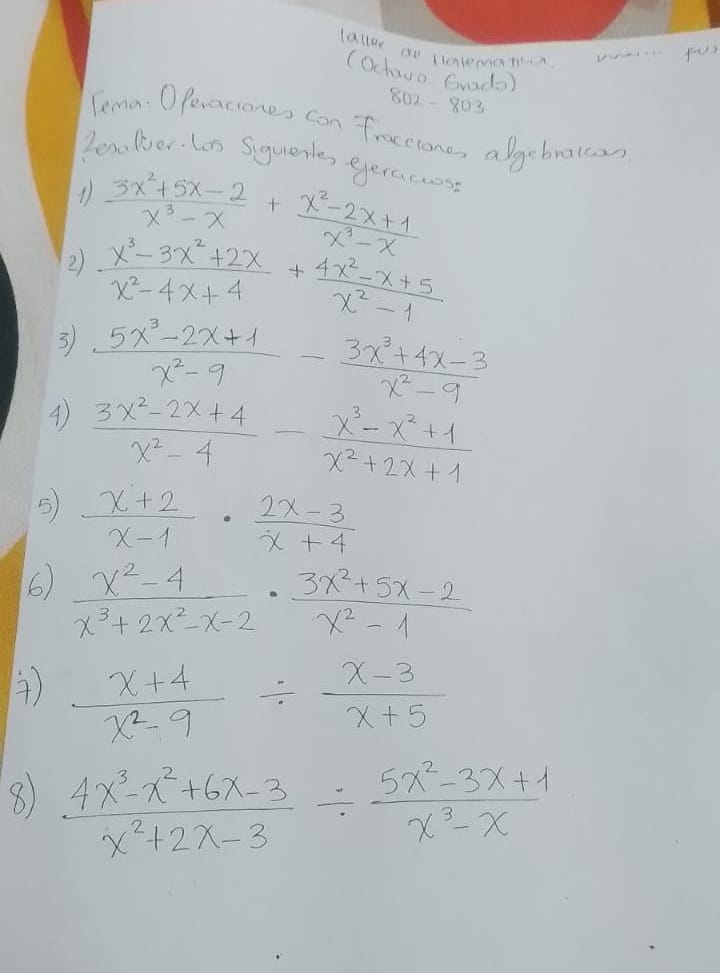 Taller de Matematica.
(Octavo Grado)
802 - 803
Tema: Operaciones con Fracciones algebraicas.
Resolver. Los Siguientes ejercicios:
1) (3x²+5x-2)/(x³-x) + (x²-2x+1)/(x³-x)
2) (x³-3x²+2x)/(x²-4x+4) + (4x²-x+5)/(x²-1)
3) (5x³-2x+1)/(x²-9) - (3x³+4x-3)/(x²-9)
4) (3x²-2x+4)/(x²-4) - (x³-x²+1)/(x²+2x+1)
5) (x+2)/(x-1) · (2x-3)/(x+4)
6) (x²-4)/(x³+2x²-x-2) · (3x²+5x-2)/(x²-1)
7) (x+4)/(x²-9) ÷ (x-3)/(x+5)
8) (4x³-x²+6x-3)/(x²+2x-3) ÷ (5x²-3x+1)/(x³-x)